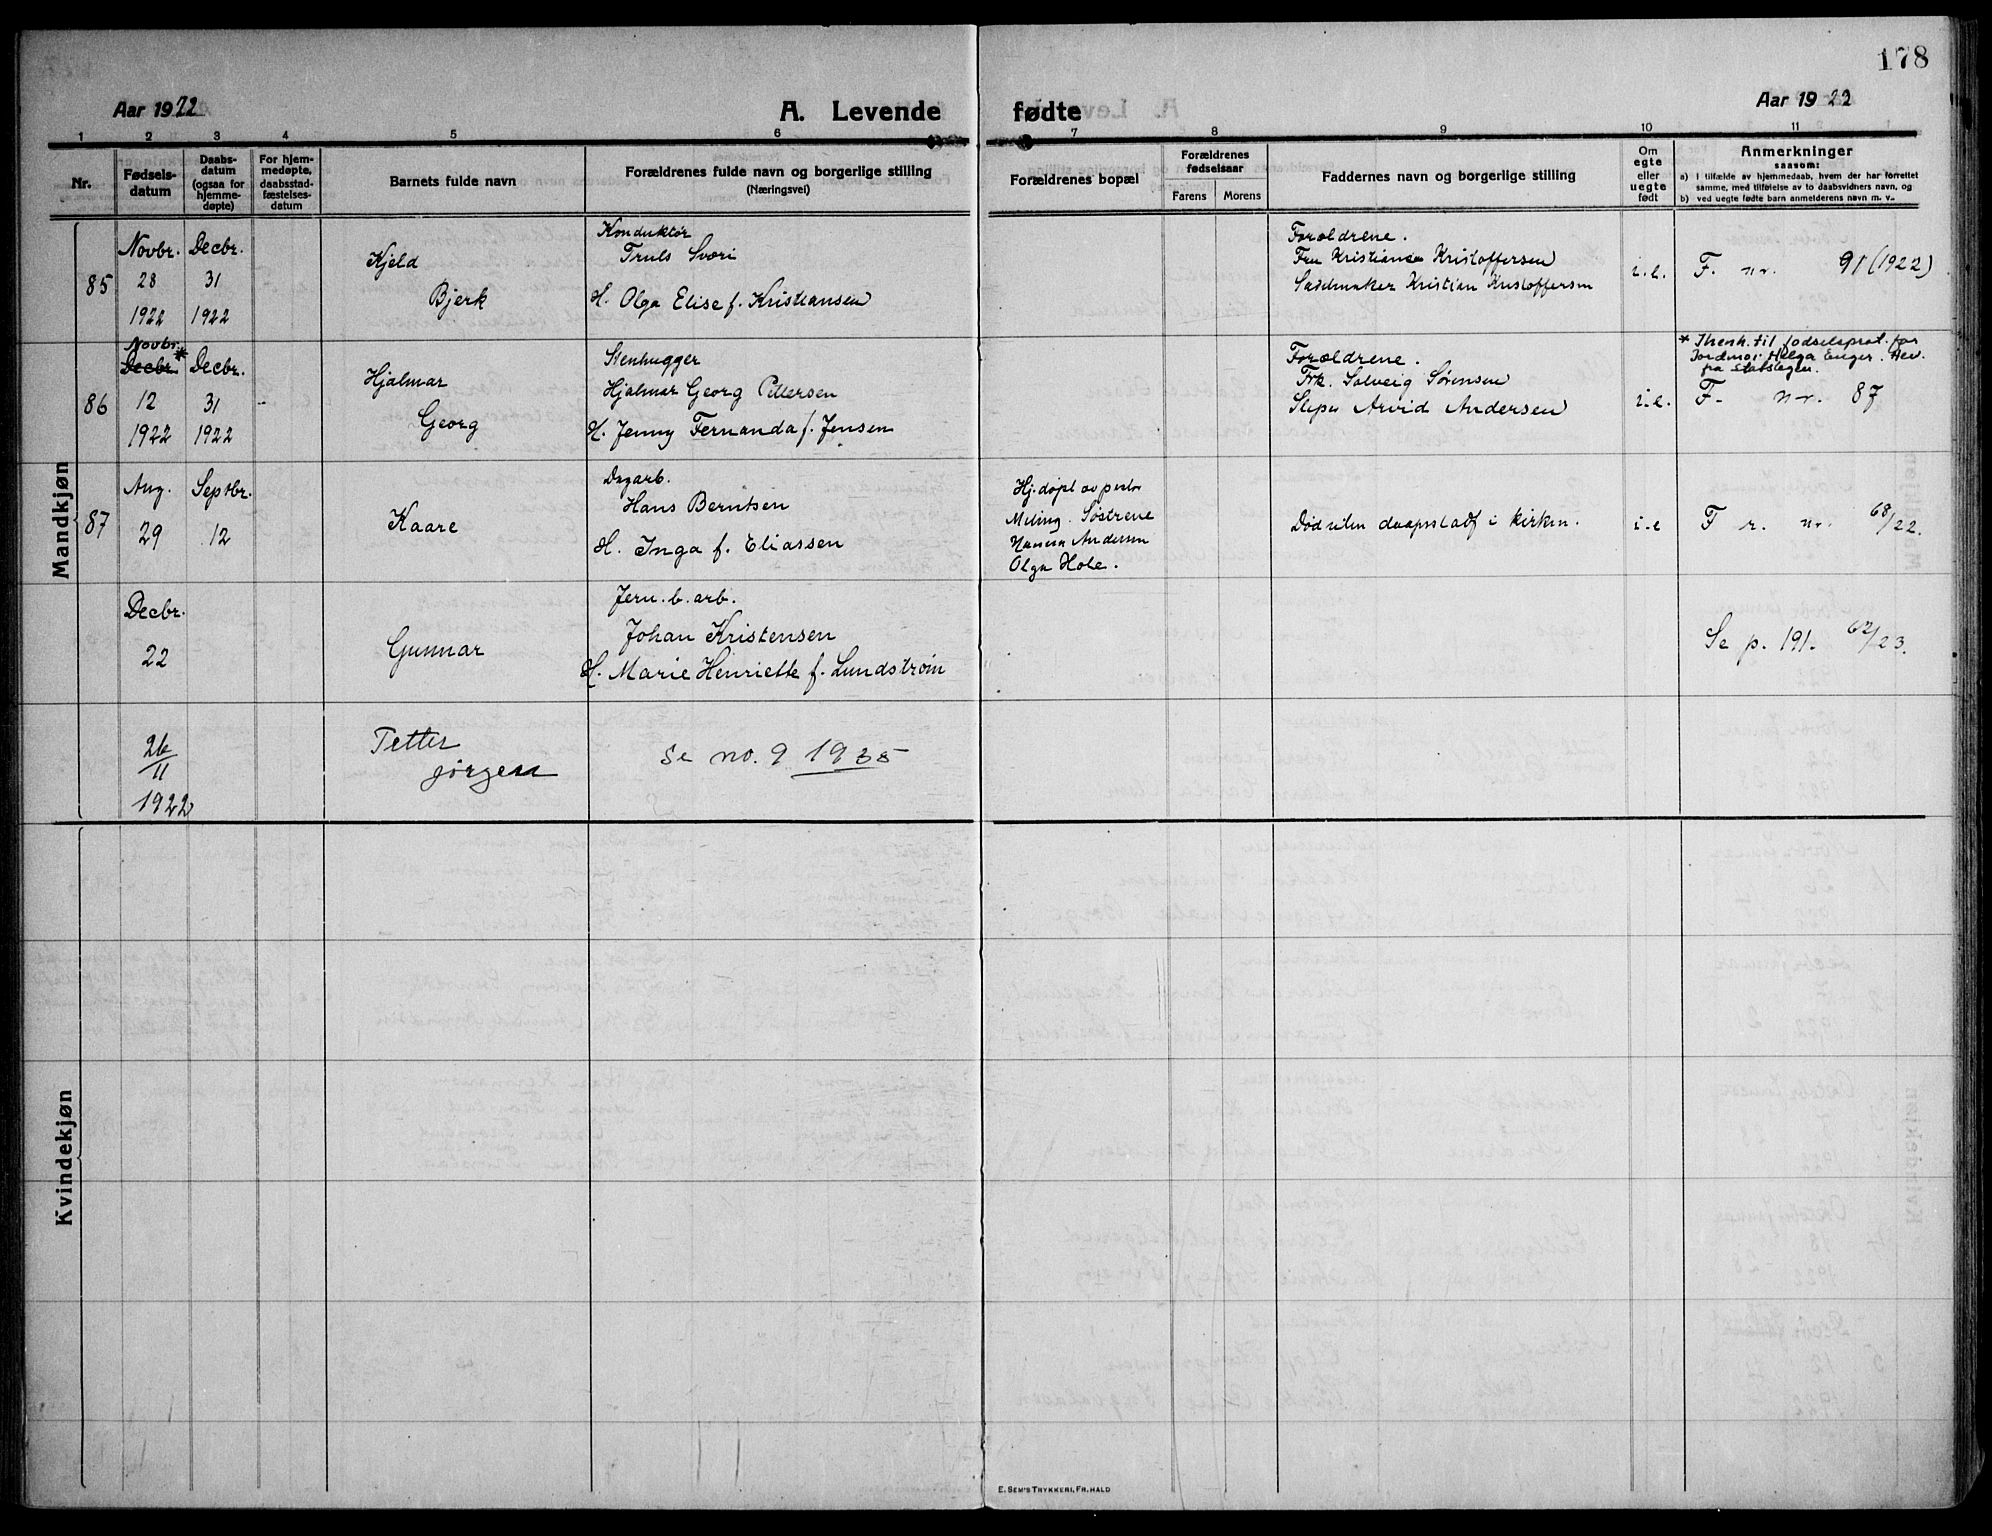 178
Aar 1922
A. Levende fødte
Aar 1922
1 2 3 4 5 6 7 8 9 10 11
Nr.
Fødsels-
datum
Daabs-
datum
(ogsaa for
hjemme-
døpte)
For hjem-
medøpte,
daabsstad-
fæstelses-
datum
Barnets fulde navn
Forældrenes fulde navn og borgerlige stilling
(Næringsvei)
Forældrenes bopæl
Forældrenes
fødselsaar
Farens Morens
Faddernes navn og borgerlige stilling
Om
egte
eller
uegte
født
Anmerkninger
saasom:
a) I tilfælde av hjemmedaab, hvem der har forrettet
samme, med tilføielse av to daabsvidners navn, og
b) ved uegte fødte barn anmelderens navn m. v.
Mandkjøn
85
Novbr.
28
1922
Decbr.
31
1922
Kjeld
Bjerk
Konduktør
Truls Sværi
H. Olga Elise f. Kristiansen
Forældrene.
Fru Kristianea Kristoffersen
Sadelmaker Kristian Kristoffersen
i.e.
F. nr. 91 (1922)
86
Novbr.
Decbr. *
12
1922
Decbr.
31
1922
Hjalmar
Georg
Stenhugger
Hjalmar Georg Pettersen
H. Jenny Fernanda f. Jensen
Forældrene.
Frk. Solveig Sørensen
Sliper Arvid Andersen
i.e.
* I henh. til fødselsprot. for
Jordmor Helga Enger.
fra statslegen.
F. nr. 87
87
Aug.
29
Septbr.
12
Kaare
Dagarb.
Hans Berntsen
H. Inga f. Eliassen
Hj.døpt av pastor
Meling. Søstrene
Hanna Andersen
Olga Hole.
Død uten daapsstadf i kirken.
i.e
F r. nr. 68/22.
Decbr.
22
Gunnar
Jern.b.arb.
Johan Kristensen
H. Marie Henriette f. Lundstrøm
Se p. 191. 62/23.
26/11
1922
Petter
Jørgen
se no. 9 1935
Kvindekjøn
E. SEM'S TRYKKERI, FR. HALD